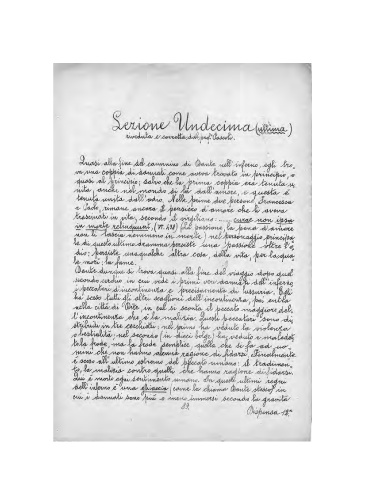 Lezione Undecima (ultima)
riveduta e corretta dal prof. Pascoli.
Quasi alla fine del cammino di Dante nell'inferno egli tro-
va una coppia di dannati come aveva trovato in principio, o
quasi al principio; salvo che la prima coppia era tenuta u-
nita anche nel mondo di là dall'amore, e questa è
tenuta unita dall'odio. Nelle prime due persone, Francesca
e Paolo, rimane ancora il pensiero d'amore che li aveva
tenuti in vita, secondo il virgiliano: curae non ipsa
in morte relinquunt. (VI. 444) La passione, la pena d'amore
non li lascia nemmeno in morte; nel personaggio principa-
le di questo ultimo dramma persiste una passione oltre l'o-
dio; persiste una qualche altra cosa della vita, per l'acqua,
la morte: la fame.
Dante dunque si trova quasi alla fine del viaggio dopo quel
secondo cerchio in cui vede i primi veri dannati dell'inferno
i peccatori d'incontinenza e precisamente di lussuria. Egli
ha sceso tutti gli altri scaglioni dell'incontinenza, poi entra
nella città di Dite in cui si sconta il peccato maggiore del-
l'incontinenza che è la malizia. Questi peccatori sono di-
stribuiti in tre cerchietti: nel primo ha veduto la violenza
o bestialità; nel secondo (in dieci bolge) ha veduto e
la frode, ma la frode semplice quella che si fa ad uo-
mini che non hanno alcuna ragione di fidarsi. Finalmente
è sceso all'ultimo estremo del peccato umano: il tradimen-
to, la malizia contro quelli che hanno ragione di fidarsi.
Qui è morto ogni sentimento umano. In questi ultimi regni
dell'inferno è una ghiaccia (come la chiama Dante stesso) in
cui i dannati sono più o meno immersi secondo la gravità
89.
Dispensa 12ª